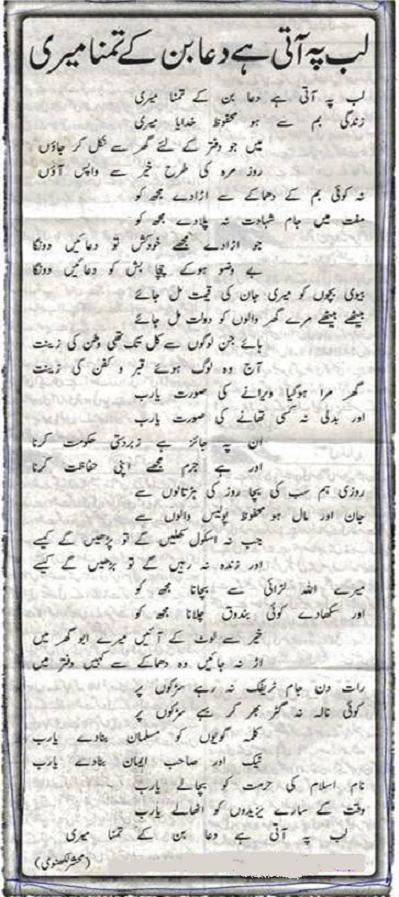 لب پہ آتی ہے دعا بن کے تمنا میری
لب پہ آتی ہے دعا بن کے تمنا میری
زندگی بم سے ہو محفوظ خدایا میری
میں جو دفتر کے لئے گھر سے نکل کر جاؤں
روز مرہ کی طرح خیر سے واپس آؤں
نہ کوئی بم کے دھماکے سے اڑادے مجھ کو
مفت میں جام شہادت نہ پلادے مجھ کو
جو اڑادے مجھے خودکش تو دعائیں دونگا
بے وضو ہوکے چچا بش کو دعائیں دونگا
بیوی بچوں کو میری جان کی قیمت مل جائے
بیٹھے بیٹھے مرے گھر والوں کو دولت مل جائے
ہائے جن لوگوں سے کل تک تھی وطن کی زینت
آج وہ لوگ ہوئے قبر و کفن کی زینت
گھر مرا ہوگیا ویرانے کی صورت یارب
اور بدلی نہ کسی تھانے کی صورت یارب
ان پہ جائز ہے زبردستی حکومت کرنا
اور ہے جرم مجھے اپنی حفاظت کرنا
روزی ہم سب کی بچا روز کی ہڑتالوں سے
جان اور مال ہو محفوظ پولیس والوں سے
جب نہ اسکول کھلیں گے تو پڑھیں گے کیسے
اور زندہ نہ رہیں گے تو بڑھیں گے کیسے
میرے اللہ لڑائی سے بچانا مجھ کو
اور سکھادے کوئی بندوق چلانا مجھ کو
خیر سے لوٹ کے آئیں میرے ابو گھر میں
اڑ نہ جائیں وہ دھماکے سے کہیں دفتر میں
رات دن جام ٹریفک نہ رہے سڑکوں پر
کوئی نالہ نہ گٹر بھر کر بہے سڑکوں پر
کلمہ گویوں کو مسلمان بنادے یارب
نیک اور صاحب ایمان بنادے یارب
نام اسلام کی حرمت کو بچالے یارب
وقت کے سارے یزیدوں کو اٹھالے یارب
لب پہ آتی ہے دعا بن کے تمنا میری
(محشر لکھنوی)